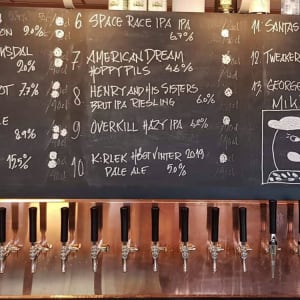 9.0%
DAL
2.0%
OT 7.3%
LE
8.9%
15.5%
6 SPACE RACE IPA IPA
6.7%
7 AMERICAN DREAM
HOPPY PILS 4.6%
8 HENRY AND HIS SISTERS
BRUT IPA RIESLING 6.0%
9 OVERKILL HAZY IPA
10 K:RLEK HÖST VINTER 2019
PALE ALE 5.0%
11 SANTAS
12 TWEAKER
13 GEORGE
MIK